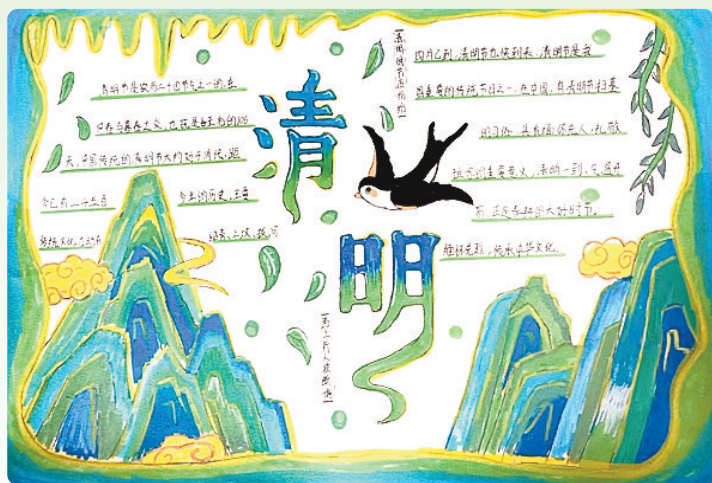 清明
清明节是农历二十四节气之一的,在
仲春与暮春之交,也就是冬至后的108
天,中国传统的清明节大约始于周代,距
今已有二千五百
多年的历史,主要
传统文化活动有
踏青、上坟、拔河
清明时节雨纷纷
路上行人欲断魂
四月已到,清明节也快到来,清明节是我
国重要的传统节日之一,在中国,有清明节扫墓
的习俗,具有缅怀先人、礼敬
祖先的重要意义,清明一到,气温升
高,正是春耕的大好时节。
缅怀先烈,传承中华文化